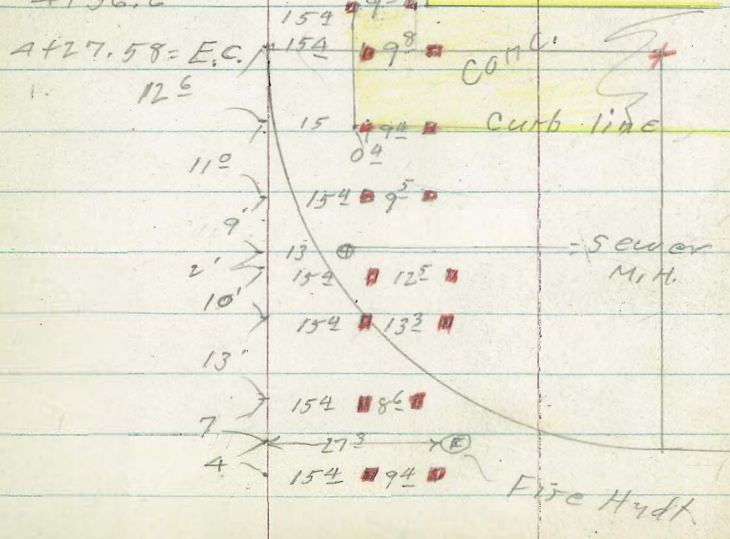 15⁴
4+27.58 = E.C. 15⁴ 9⁸ Conc.
12⁶
15 9⁴ Curb line
0⁴
11⁰
15⁴ 9⁵
9'
13 = Sewer
2' 15⁴ 12⁵ M.H.
10'
15⁴ 13³
13'
15⁴ 8⁶
7
27³
4 15⁴ 9⁴ Fire Hydt